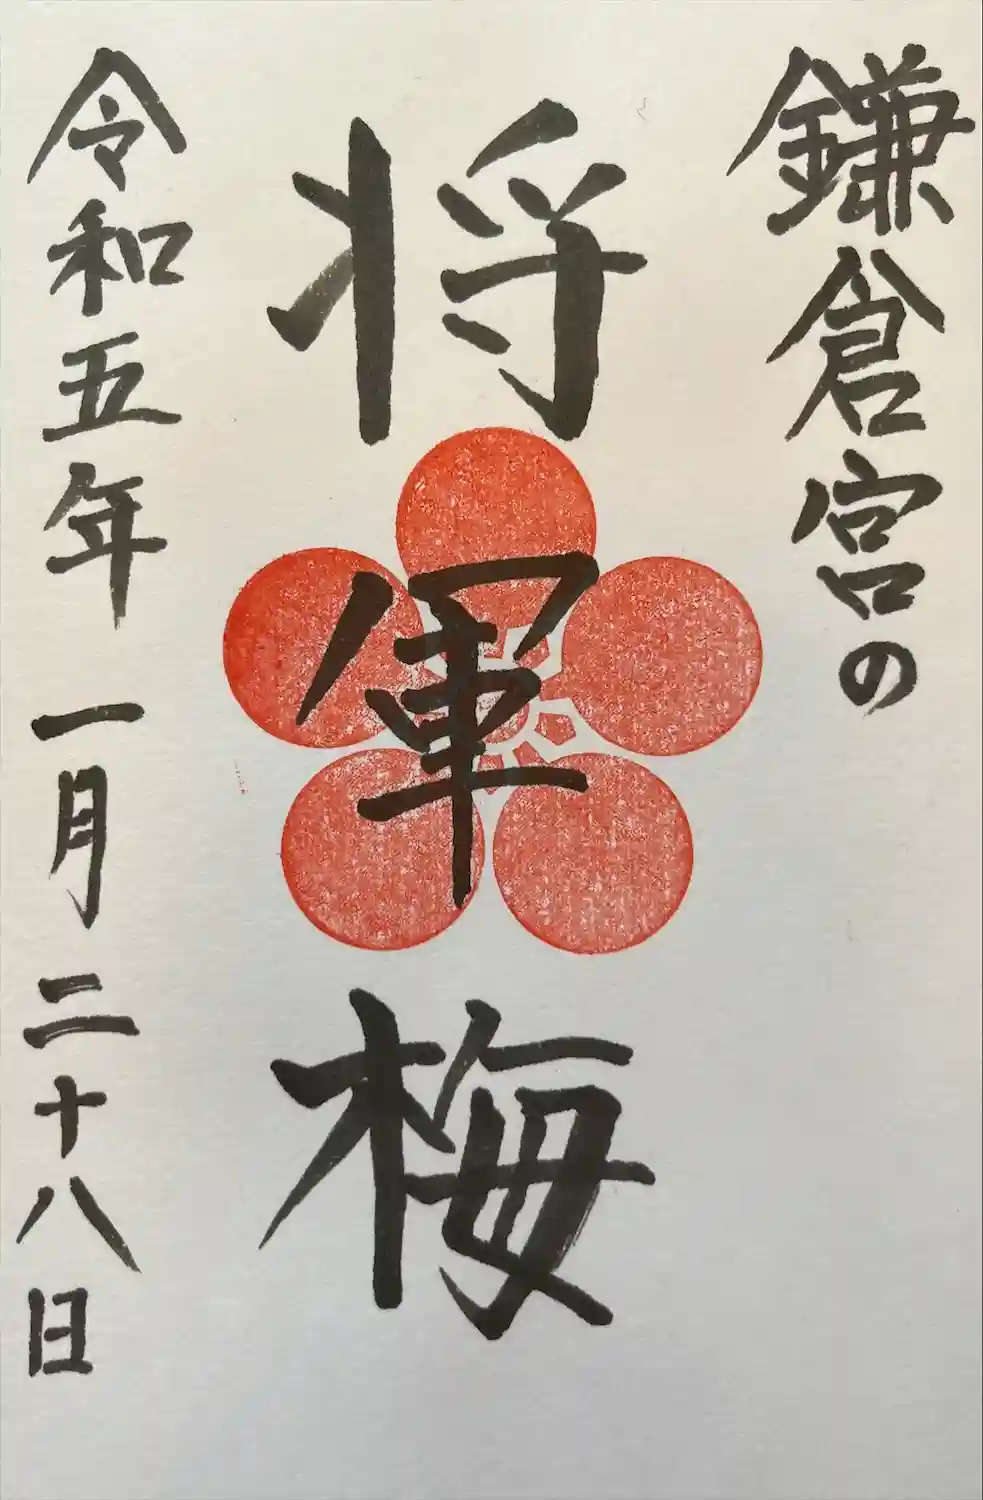 鎌倉宮の
将軍梅
令和五年一月二十八日